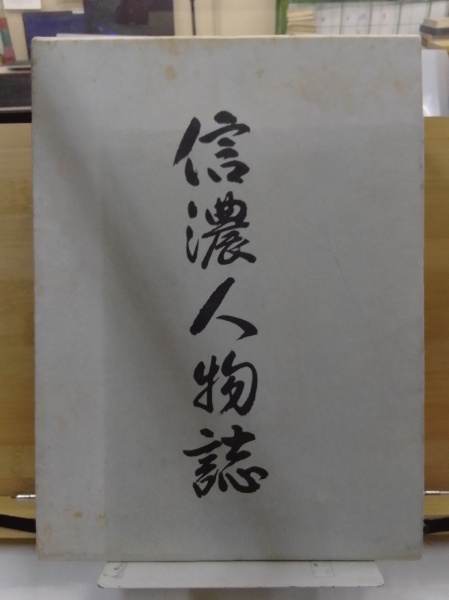 信濃人物誌